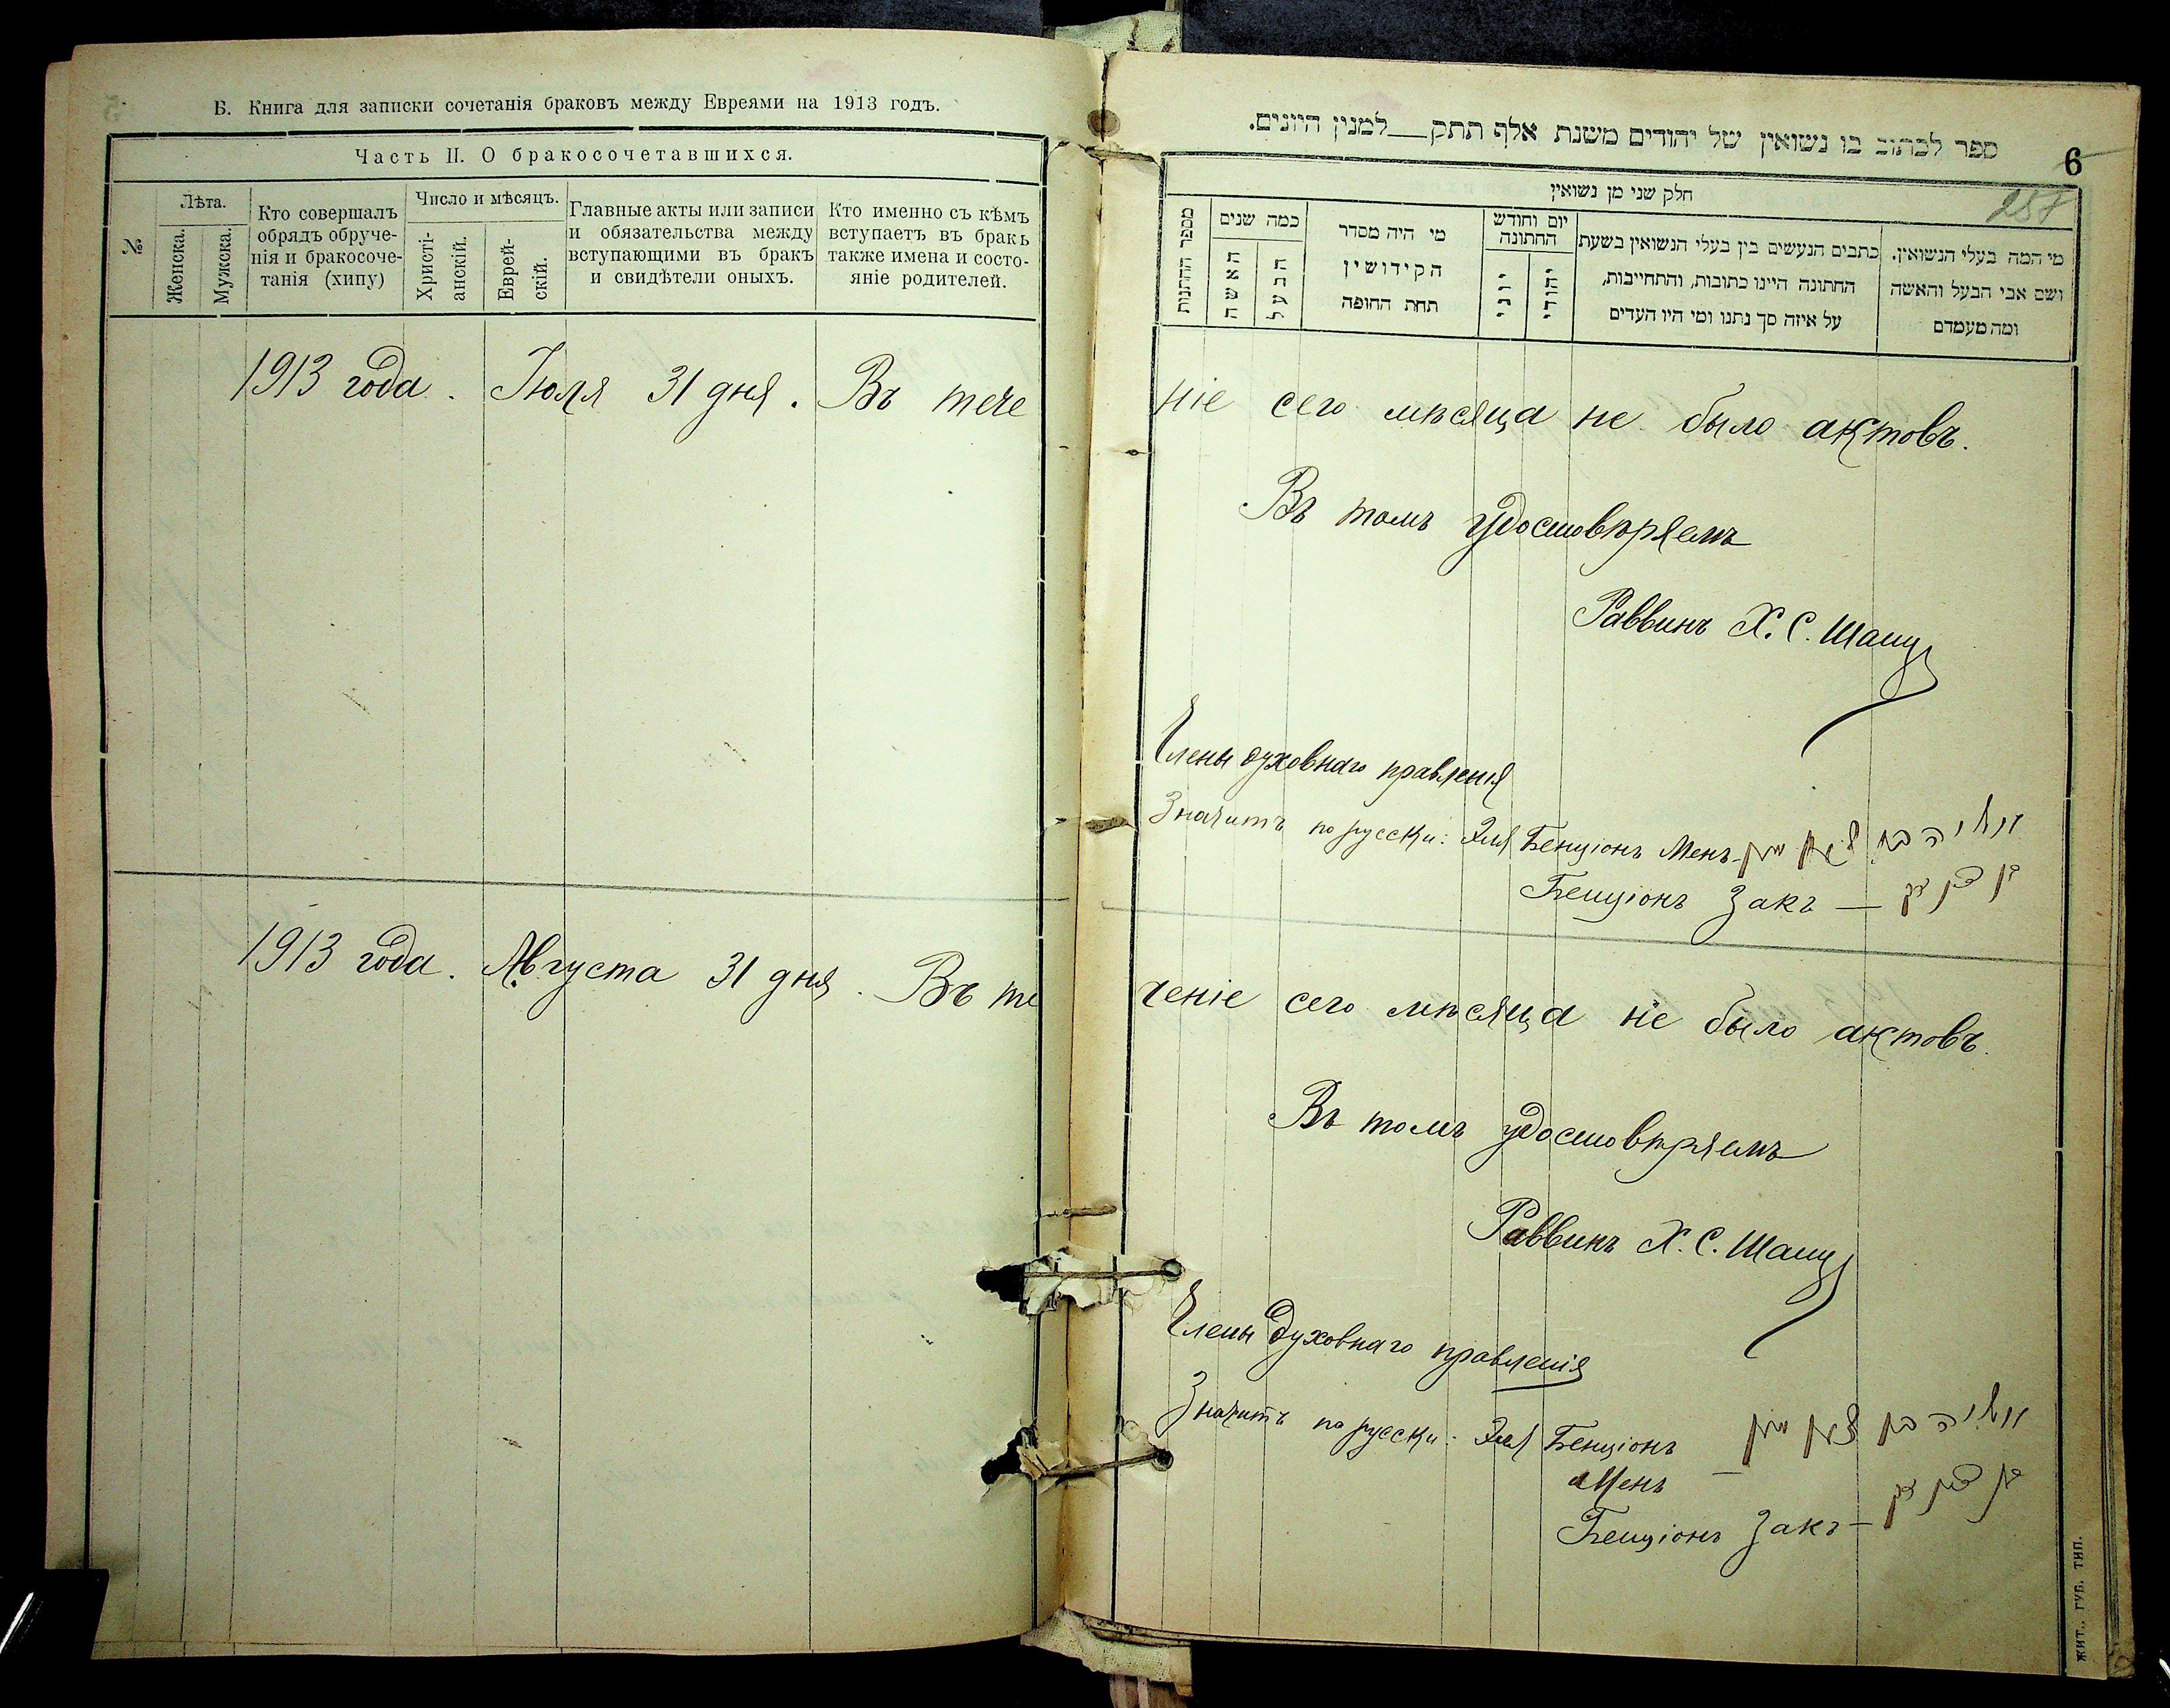 Б. Книга для записки сочетанія браковъ между Евреями на 1913 годъ.
Часть II. О бракосочетавшихся.
№
Лѣта.
Женска.
Мужска.
Кто совершалъ
обрядъ обруче-
нія и бракосоче-
танія (хипу)
Число и мѣсяцъ.
Христі-
анскій.
Еврей-
скій.
Главные акты или записи
и обязательства между
вступающими въ бракъ
и свидѣтели оныхъ.
Кто именно съ кѣмъ
вступаетъ въ бракъ
также имена и состо-
яніе родителей.
1913 года. Іюля 31 дня. Въ тече
1913 года. Августа 31 дня. Въ те
ספר לכתוב בו נשואין של יהודים משנת אלף תתק—למנין היונים.
6
257
חלק שני מן נשואין
מי המה בעלי הנשואין.
ושם אבי הבעל והאשה
ומה מעמדם
כתבים הנעשים בין בעלי הנשואין בשעת
החתונה היינו כתובות, והתחייבות,
על איזה סך נתנו ומי היו העדים
יום וחודש
החתונה
יהודי
יוני
מי היה מסדר
הקידושין
תחת החופה
כמה שנים
הבעל
האשה
מספר החתונות
ніе сего мѣсяца не было актовъ.
Въ томъ удостовѣряемъ
Раввинъ Х. С. Шацъ
Члены духовнаго правленія
Значитъ по русски: Эля Бенціонъ Менъ - אליה בן ציון מין
Бенціонъ Закъ — בן ציון זק
ченіе сего мѣсяца не было актовъ.
Въ томъ удостовѣряемъ
Раввинъ Х. С. Шацъ
Члены духовнаго правленія
Значитъ по русски: Эля Бенціонъ אליה בן ציון מין
Менъ —
Бенціонъ Закъ — בן ציון זק
ЖИТ., ГУБ. ТИП.